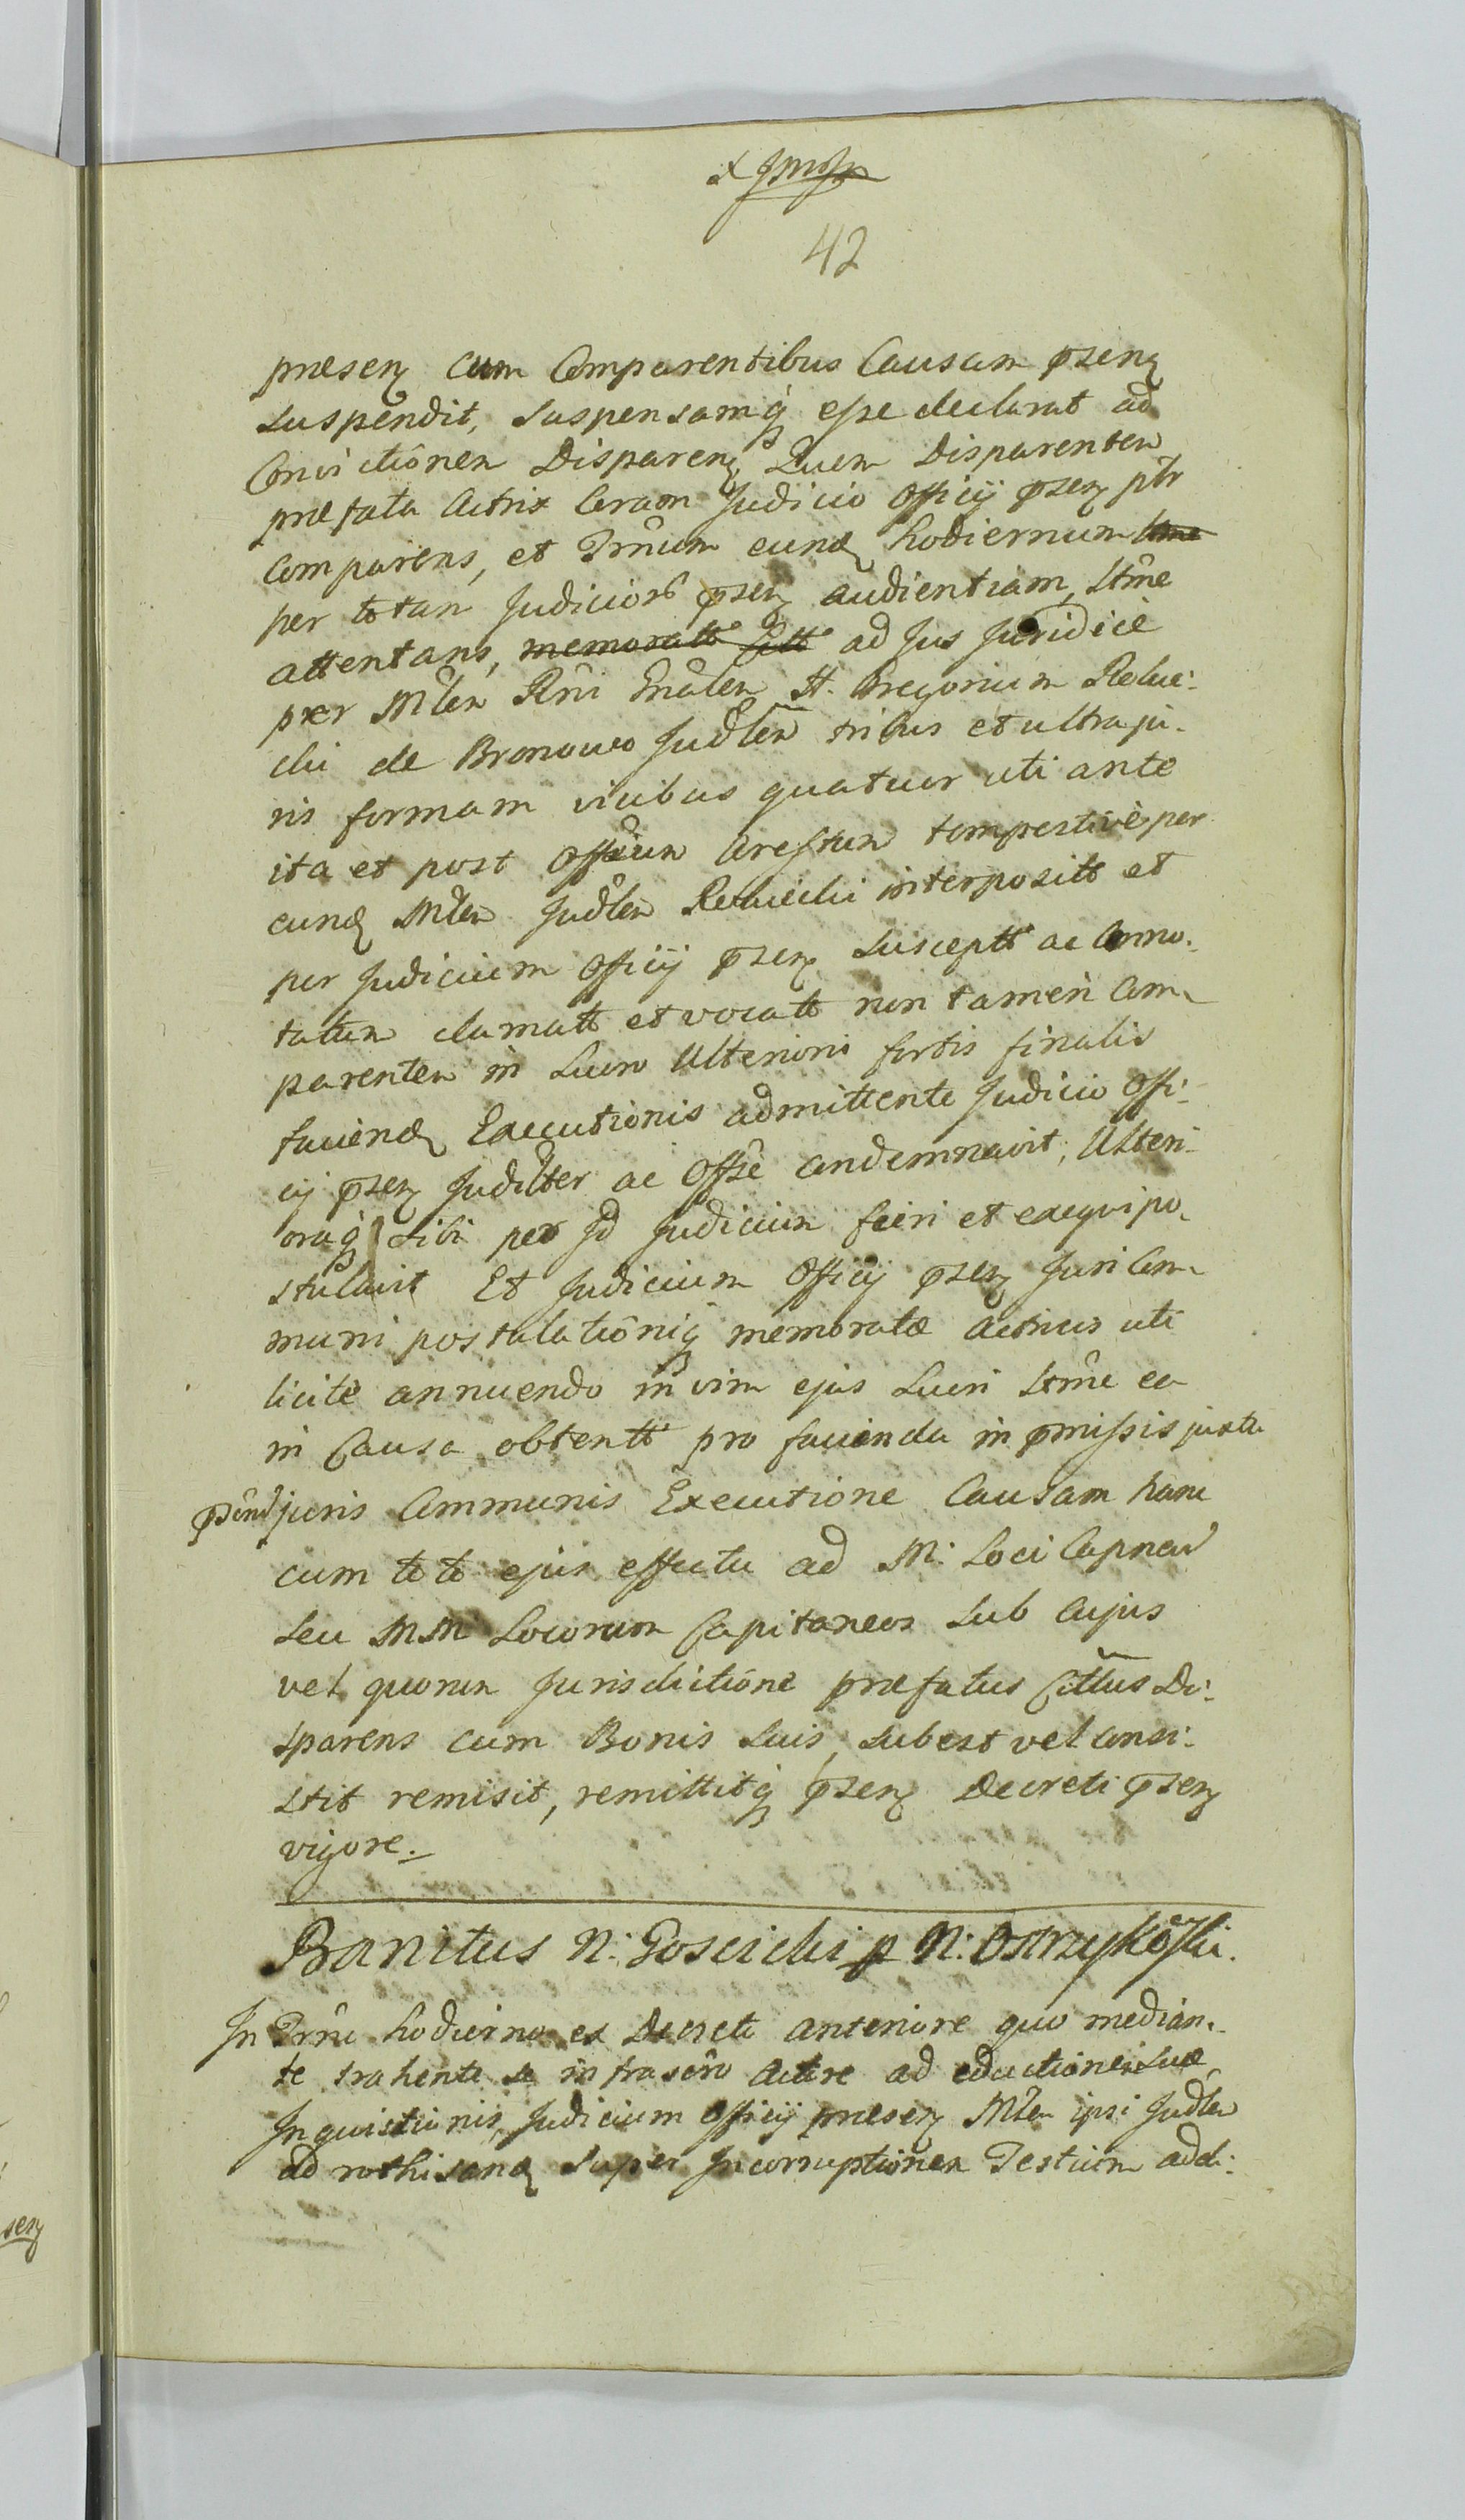 42
præsen cum Comparentibus Causam pñsen
suspendit, suspensamq esse declarat ad
Convictiônem Disparen Quem Disparentem
præfata Actrix Coram Judicio Officij pñsen ptr
Comparens, et Trnûm eund hodiernum
per totam Judicior pñsen audientiam, Ltme
attentans, memoratt Citt ad Jus Juridicè
per Mlem Rni Gnâlem St. Gregorium
cki de Bronowo Judlem tribus et ultra ju-
ris formam vicibus quatuor uti ante
ita et post Officium Arestum tempestivè per
eund Mlem Judlem interpositt et
per Judicium Officij pñsen susceptt ac Conno-
tatum clamatt et vocatt non tamen Com-
parentem in Lucro Ulteriori fortis finalis
faciend Executionis admittente Judicio Offi-
cij pñsen Judilter ac Offse condemnavit, Ulteri-
oraq sibi per Jd Judicium fieri et exequi po-
stulavit Et Judicium Officij pñsen Juri Com-
muni postulatiôniq memoratæ Actricis uti
licitè annuendo in vim ejus Lucri Ltmê ea
in Causa obtentt pro facienda in pmissis juxta
juris Communis Executione Causam hanc
cum toto ejus effectu ad M: Loci Capneu
seu MM Locorum Capitaneos sub cujus
vel quorum Jurisdictiône præfatus Cittus Di-
sparens cum Bonis suis, subest vel consi-
stit remisit, remittitq pñsen Decreti pñsen
vigore.
Banitus N: Goscicki p N: Ostrzykoski.
In Trnô hodierno ex Decreto anteriore quo median-
te trahente se infrascro Actore ad eductionem suæ
Inquisitionis, Judicium Officij præsen Mlem ipsi Judlem
ad rothisand super Incorruptionem Testium addi-
sen